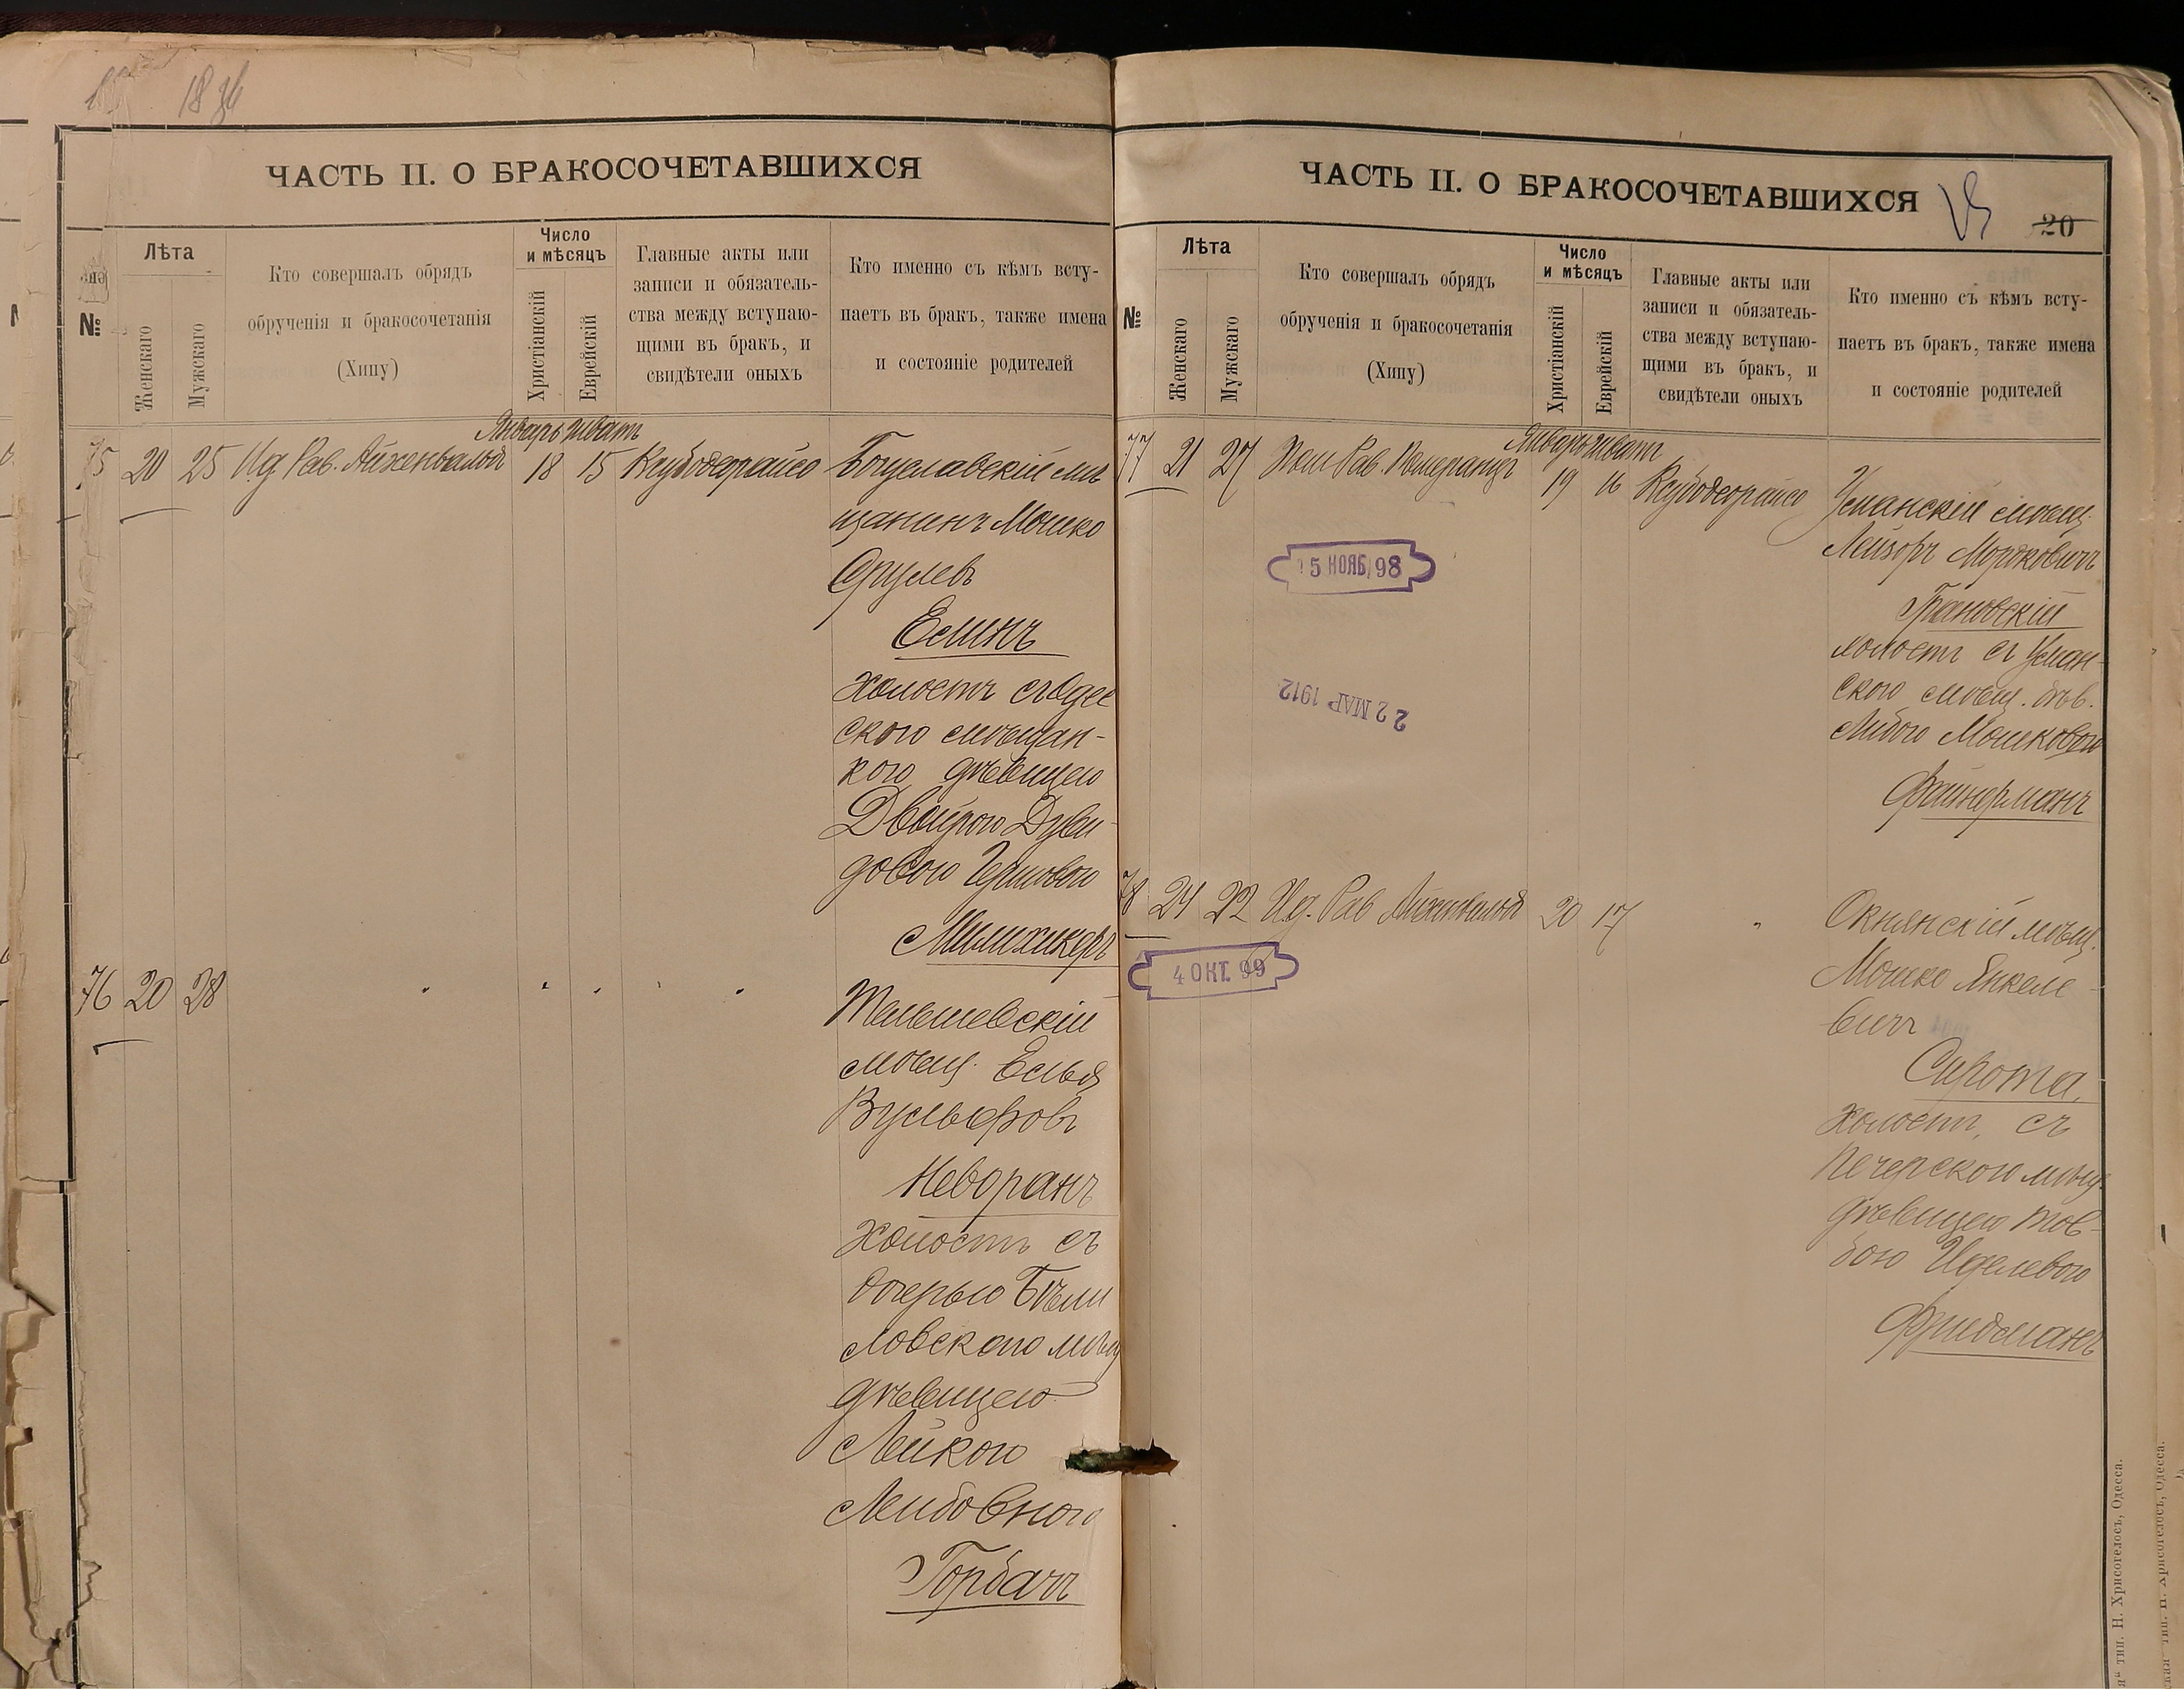 1896
ЧАСТЬ II. О БРАКОСОЧЕТАВШИХСЯ
№
Лѣта
Женскаго
Мужскаго
Кто совершалъ обрядъ
обрученія и бракосочетанія
(Хипу)
Число
и мѣсяцъ
Христіанскій
Еврейскій
Главные акты или
записи и обязатель-
ства между вступаю-
щими въ бракъ, и
свидѣтели оныхъ
Кто именно съ кѣмъ всту-
паетъ въ бракъ, также имена
и состояніе родителей
Январь Шватъ
75 20 25 И.д. Рав. Айхенвальдъ 18 15 Ксубодеорайсо Богуславскій мѣ
щанинъ Мошко
Срулевъ
Елинъ
холостъ съ Одес
скою мѣщан-
кою дѣвицею
Двойрою Дуви-
довою Гершовою
Мильхикеръ
76 20 28 " " " " " Тельшевскій
мѣщ. Елья
Вульфовъ
Неворанъ
Холостъ съ
дочерью Бѣли
ловскаго мѣщ
дѣвицею
Лейкою
Лейбовною
Горбачъ
ЧАСТЬ II. О БРАКОСОЧЕТАВШИХСЯ
20
№
Лѣта
Женскаго
Мужскаго
Кто совершалъ обрядъ
обрученія и бракосочетанія
(Хипу)
Число
и мѣсяцъ
Христіанскій
Еврейскій
Главные акты или
записи и обязатель-
ства между вступаю-
щими въ бракъ, и
свидѣтели оныхъ
Кто именно съ кѣмъ всту-
паетъ въ бракъ, также имена
и состояніе родителей
Январь Шватъ
77 21 27 Пом Рав. Померанцъ 19 16 Ксубодеорайсо Уманскій мѣщ.
Лейзоръ Мордковичъ
Грановскій
холостъ съ Уман-
скою мѣщ. дѣв.
Либою Мошковою
Файнерманъ
15 НОЯБ. 98
22 МАР 1912
78 24 22 И.д. Рав Айхенвальдъ 20 17 " Окнянскій мѣщ.
Мошко Янкеле-
вичъ
Сирота.
холостъ, съ
Печерскою мѣщ.
дѣвицею Тов-
бою Иделевою
Фридманъ
4 ОКТ. 99
тип. Н. Хрисогелосъ, Одесса.
тип. Н. Хрисогелосъ, Одесса.